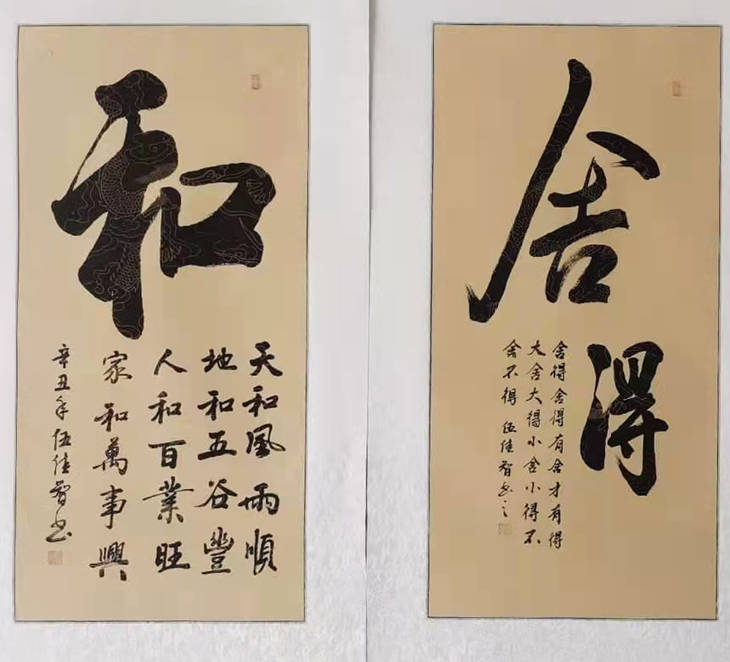 和
天和風雨順
地和五谷豐
人和百業旺
家和萬事興
辛丑年伍佳智书
舍
得
舍得舍得有舍才有得
大舍大得小舍小得不
舍不得 伍佳智书之